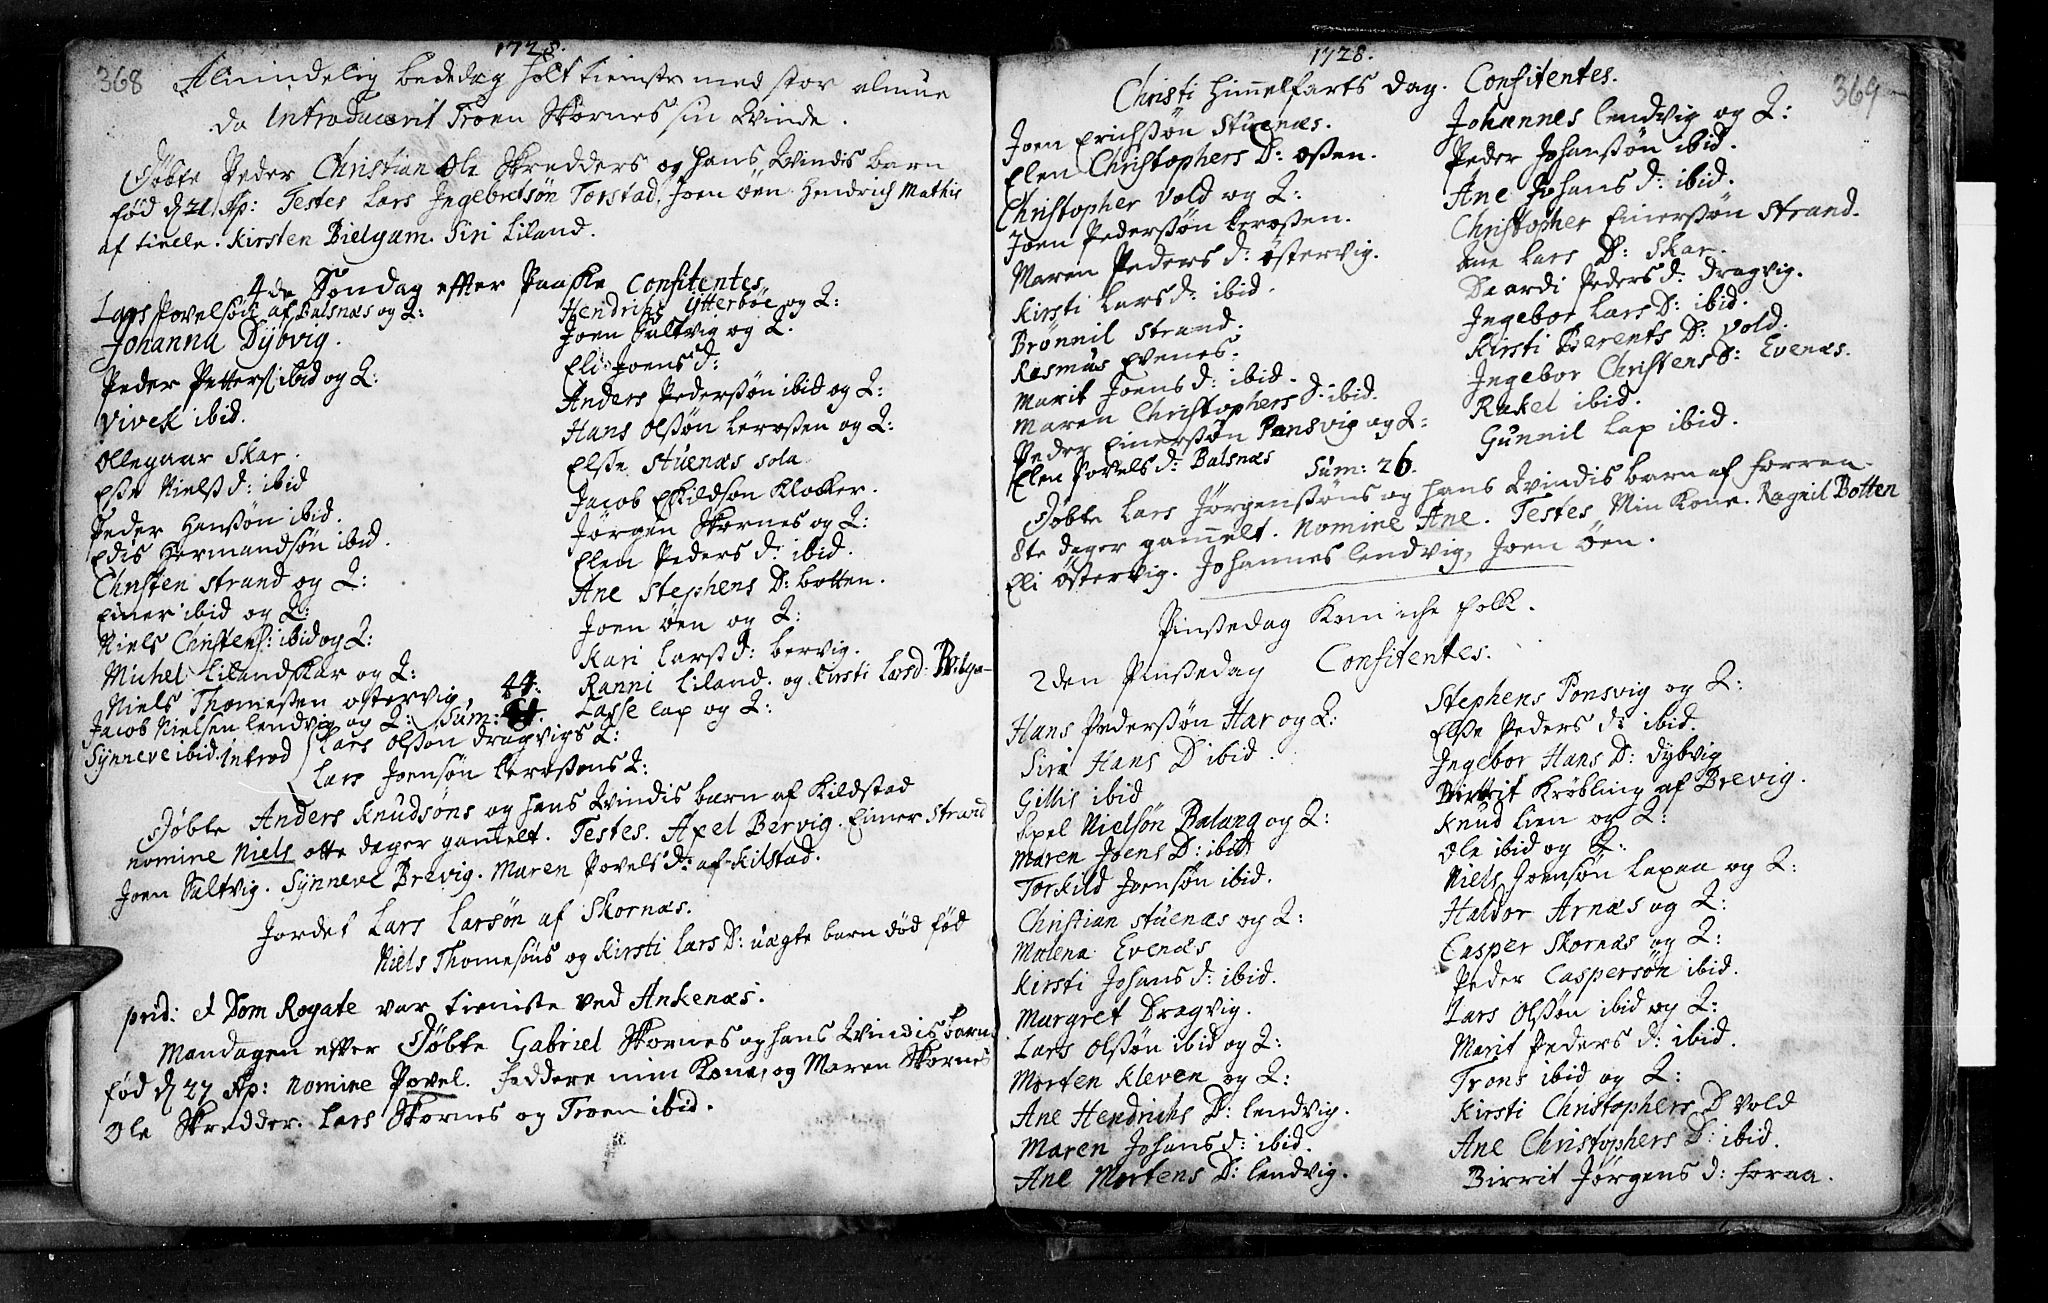 1728.
368
Almindelig bededag holt tieniste med stor almue
da Introducerit Troen Skornes sin Qvinde.
Døbte Peder Christian Ole Skredders og hans Qvindis barn
fød d 21 Ap: Testes Lars Ingebretsøn Torstad, Joen øen. Hendrich Mathis
af tielle. Kirsten Bielgam. Siri Liland.
4de Søndag effter Paaske Confitentes
Lars Povelsøn af Balsnæs og Q:
Johanna Dybvig.
Peder Petters: ibid og Q:
Vivek ibid.
Ollegaar Skar.
Else Niels d: ibid
Peder Hansøn ibid.
Edis Hermandsøn ibid.
Christen strand og Q:
Einer ibid og Q:
Niels Christens: ibid og Q:
Michel Liland Skar og Q:
Niels Thomessen ostervig.
Jacob Nielsen lendvig og Q:
Synneve ibid.
Hendrich Ytterbøe og Q:
Joen Saltvig og Q.
Eli Joens d:
Anders Pederssøn ibid og Q:
Hans Olssøn Lerossen og Q:
Else Stuenæs sola
Jacob Eskildsøn Klokker.
Jørgen Skornes og Q:
Elen Peders d: ibid.
Ane Stephens D: botten.
Joen øen og Q:
Kari Lars d: bervig.
Ranni Liland. og Kirsti Larsd:
Lasse lap og Q:
Sum: 44.
Introd Lars Olssøn Dragvigs Q:
Lars Joensøn Lerossens Q:
Døbte Anders Knudsøns og hans Qvindis barn af Kildstad
nomine Niels otte dager gamelt. Testes. Axel Bervig. Einer Strand
Joen Saltvig. Synneve Brevig. Maren Povels d: af Kilstad.
Jordet Lars Larsøn af Skornæs.
Niels Thomesøns og Kirsti Lars D: uægte barn død fød
prid: et Dom Rogate var tieniste ved Ankenæs.
Mandagen effter Døbte Gabriel Skornes og hans Qvindis barn
fød d 27 Ap: nomine Povel. Faddere min Kone, og Maren Skornes
Ole Skredder. Lars Skornes og Troen ibid.
1728.
369
Christi Himmelfarts Dag. Confitentes.
Joen Erichssøn Stuenæs.
Elen Christophers D: ossen.
Christopher Vold og Q:
Joen Pederssøn Lerossen.
Maren Peders d: østervig.
Kirsti Lars d: ibid.
Brønnil strand.
Rasmus Evenes.
Marit Joens d: ibid.
Maren Christophers D. ibid.
Peder Einerssøn Ponsvig og Q:
Elen Povels d: Balsnæs
Johannes lendvig og Q:
Peder Johanssøn ibid.
Ane Johans d: ibid.
Christopher Einerssøn strand.
Ane Lars D: Skar.
Daardi Peders d: dragvig.
Ingebor Lars D: ibid.
Kirsti Berents D: Vold.
Ingebor Christens D: Evenæs.
Rakel ibid.
Gunnil lap ibid.
Sum: 26.
Døbte Lars Jørgenssøns og hans Qvindis barn af forraa.
8te dager gammelt. nomine Ane. Testes Min Kone. Ragnil Botten
Eli østervig. Johannes lendvig, Joen øen.
Pinssedag Kom iche folk.
2den Pinssedag Confitentes.
Hans Pederssøn Har og Q:
Siri Hans D ibid.
Gillis ibid
Axel Nielsøn Balang og Q:
Maren Joens D: ibid
Torkild Joensøn ibid.
Christian Stuenæs og Q:
Malena Evenæs
Kirsti Johans d: ibid.
Margret Dragvig.
Lars Olssøn ibid og Q:
Morten Kleven og Q:
Ane Hendrichs D: lendvig.
Maren Johans d: ibid.
Ane Mortens D: lendvig.
Stephens Ponsvig og Q:
Else Peders d: ibid.
Ingebor Hans D: dybvig
Birrit Krøbling af Brevig.
Knud Lien og Q:
Ole ibid og Q:
Niels Joensøn Laxaa og Q:
Haldor Arnæs og Q:
Casper Skornæs og Q:
Peder Caspersøn ibid.
Lars Olssøn ibid og Q:
Marit Peders d: ibid.
Trons ibid og Q:
Kirsti Christophers D Vold
Ane Christophers D: ibid.
Birrit Jørgens d: foraa.